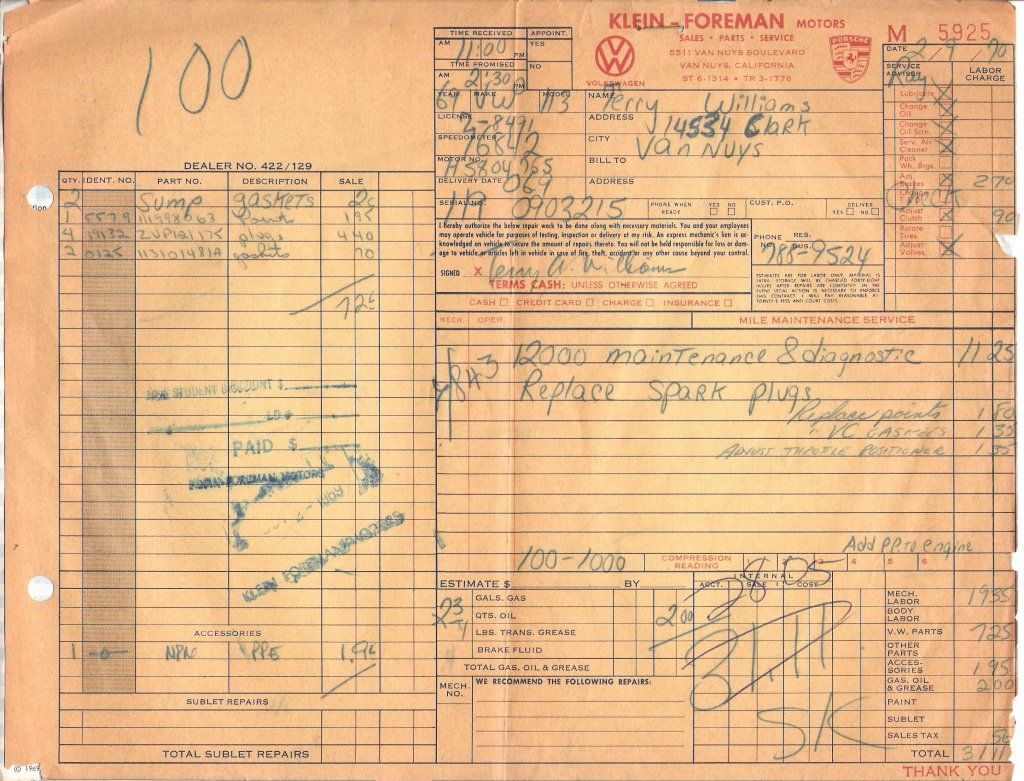 100
KLEIN-FOREMAN MOTORS
SALES • PARTS • SERVICE
5511 VAN NUYS BOULEVARD
VAN NUYS, CALIFORNIA
ST 6-1314 • TR 3-1776
VOLKSWAGEN
PORSCHE
M 5925
DATE 2-9-70
TIME RECEIVED
AM 11:00 PM
APPOINT.
YES
NO
TIME PROMISED
AM 2:30 PM
YEAR 69 MAKE VW MODEL 113
LICENSE
SPEEDOMETER
MOTOR NO.
DELIVERY DATE 069
SERIAL NO. 119 0903215
NAME Terry Williams
ADDRESS 14534 Clark
CITY Van Nuys
BILL TO
ADDRESS
PHONE WHEN READY YES NO
CUST. P.O.
DELIVER YES NO
SERVICE ADVISER Ray
LABOR CHARGE
Lubricate
Change Oil
Change Oil Scrn.
Serv. Air Cleaner
Pack Wh. Brgs.
Adj. Brakes 270
Check
Adjust Clutch 90
Rotate Tires
Adjust Valves
I hereby authorize the below repair work to be done along with necessary materials. You and your employees may operate vehicle for purposes of testing, inspection or delivery at my risk. An express mechanic's lien is acknowledged on vehicle to secure the amount of repairs thereto. You will not be held responsible for loss or damage to vehicle or articles left in vehicle in case of fire, theft, accident or any other cause beyond your control.
SIGNED X Terry A. Williams
TERMS CASH: UNLESS OTHERWISE AGREED
CASH CREDIT CARD CHARGE INSURANCE
PHONE RES. BUS.
788-9524
ESTIMATES ARE FOR LABOR ONLY, MATERIAL IS EXTRA. STORAGE WILL BE CHARGED FORTY-EIGHT HOURS AFTER REPAIRS ARE COMPLETED. IN THE EVENT LEGAL ACTION IS NECESSARY TO ENFORCE THIS CONTRACT, I WILL PAY REASONABLE ATTORNEY'S FEES AND COURT COSTS.
DEALER NO. 422/129
QTY. IDENT. NO. PART NO. DESCRIPTION SALE
2 Sump gaskets 20
1 5579 111998063 Points 195
4 19132 ZVP121175 plugs 440
2 0125 113101481A gaskets 70
MECH. OPER. MILE MAINTENANCE SERVICE
12000 maintenance & diagnostic 11 25
Replace spark plugs
Replace points 1 80
" VC GASKETS 1 35
ADJUST THROTTLE POSITIONER 1 35
10% STUDENT DISCOUNT $
I.D.#
PAID $
KLEIN-FOREMAN MOTORS
1969
KLEIN FOREMAN MOTORS
Add PPE to engine
100-1000 COMPRESSION READING 3 4 5 6
ESTIMATE $ BY
INTERNAL
ACCT. SALE COST
28 05
GALS. GAS
QTS. OIL 2 00
LBS. TRANS. GREASE
BRAKE FLUID
TOTAL GAS, OIL & GREASE
31 11
SK
MECH. NO.
WE RECOMMEND THE FOLLOWING REPAIRS:
ACCESSORIES
1 -0- NPN PPE
SUBLET REPAIRS
TOTAL SUBLET REPAIRS
MECH. LABOR 1935
BODY LABOR
V.W. PARTS 725
OTHER PARTS
ACCESSORIES 195
GAS, OIL & GREASE 200
PAINT
SUBLET
SALES TAX 56
TOTAL 31 11
THANK YOU
© 1969